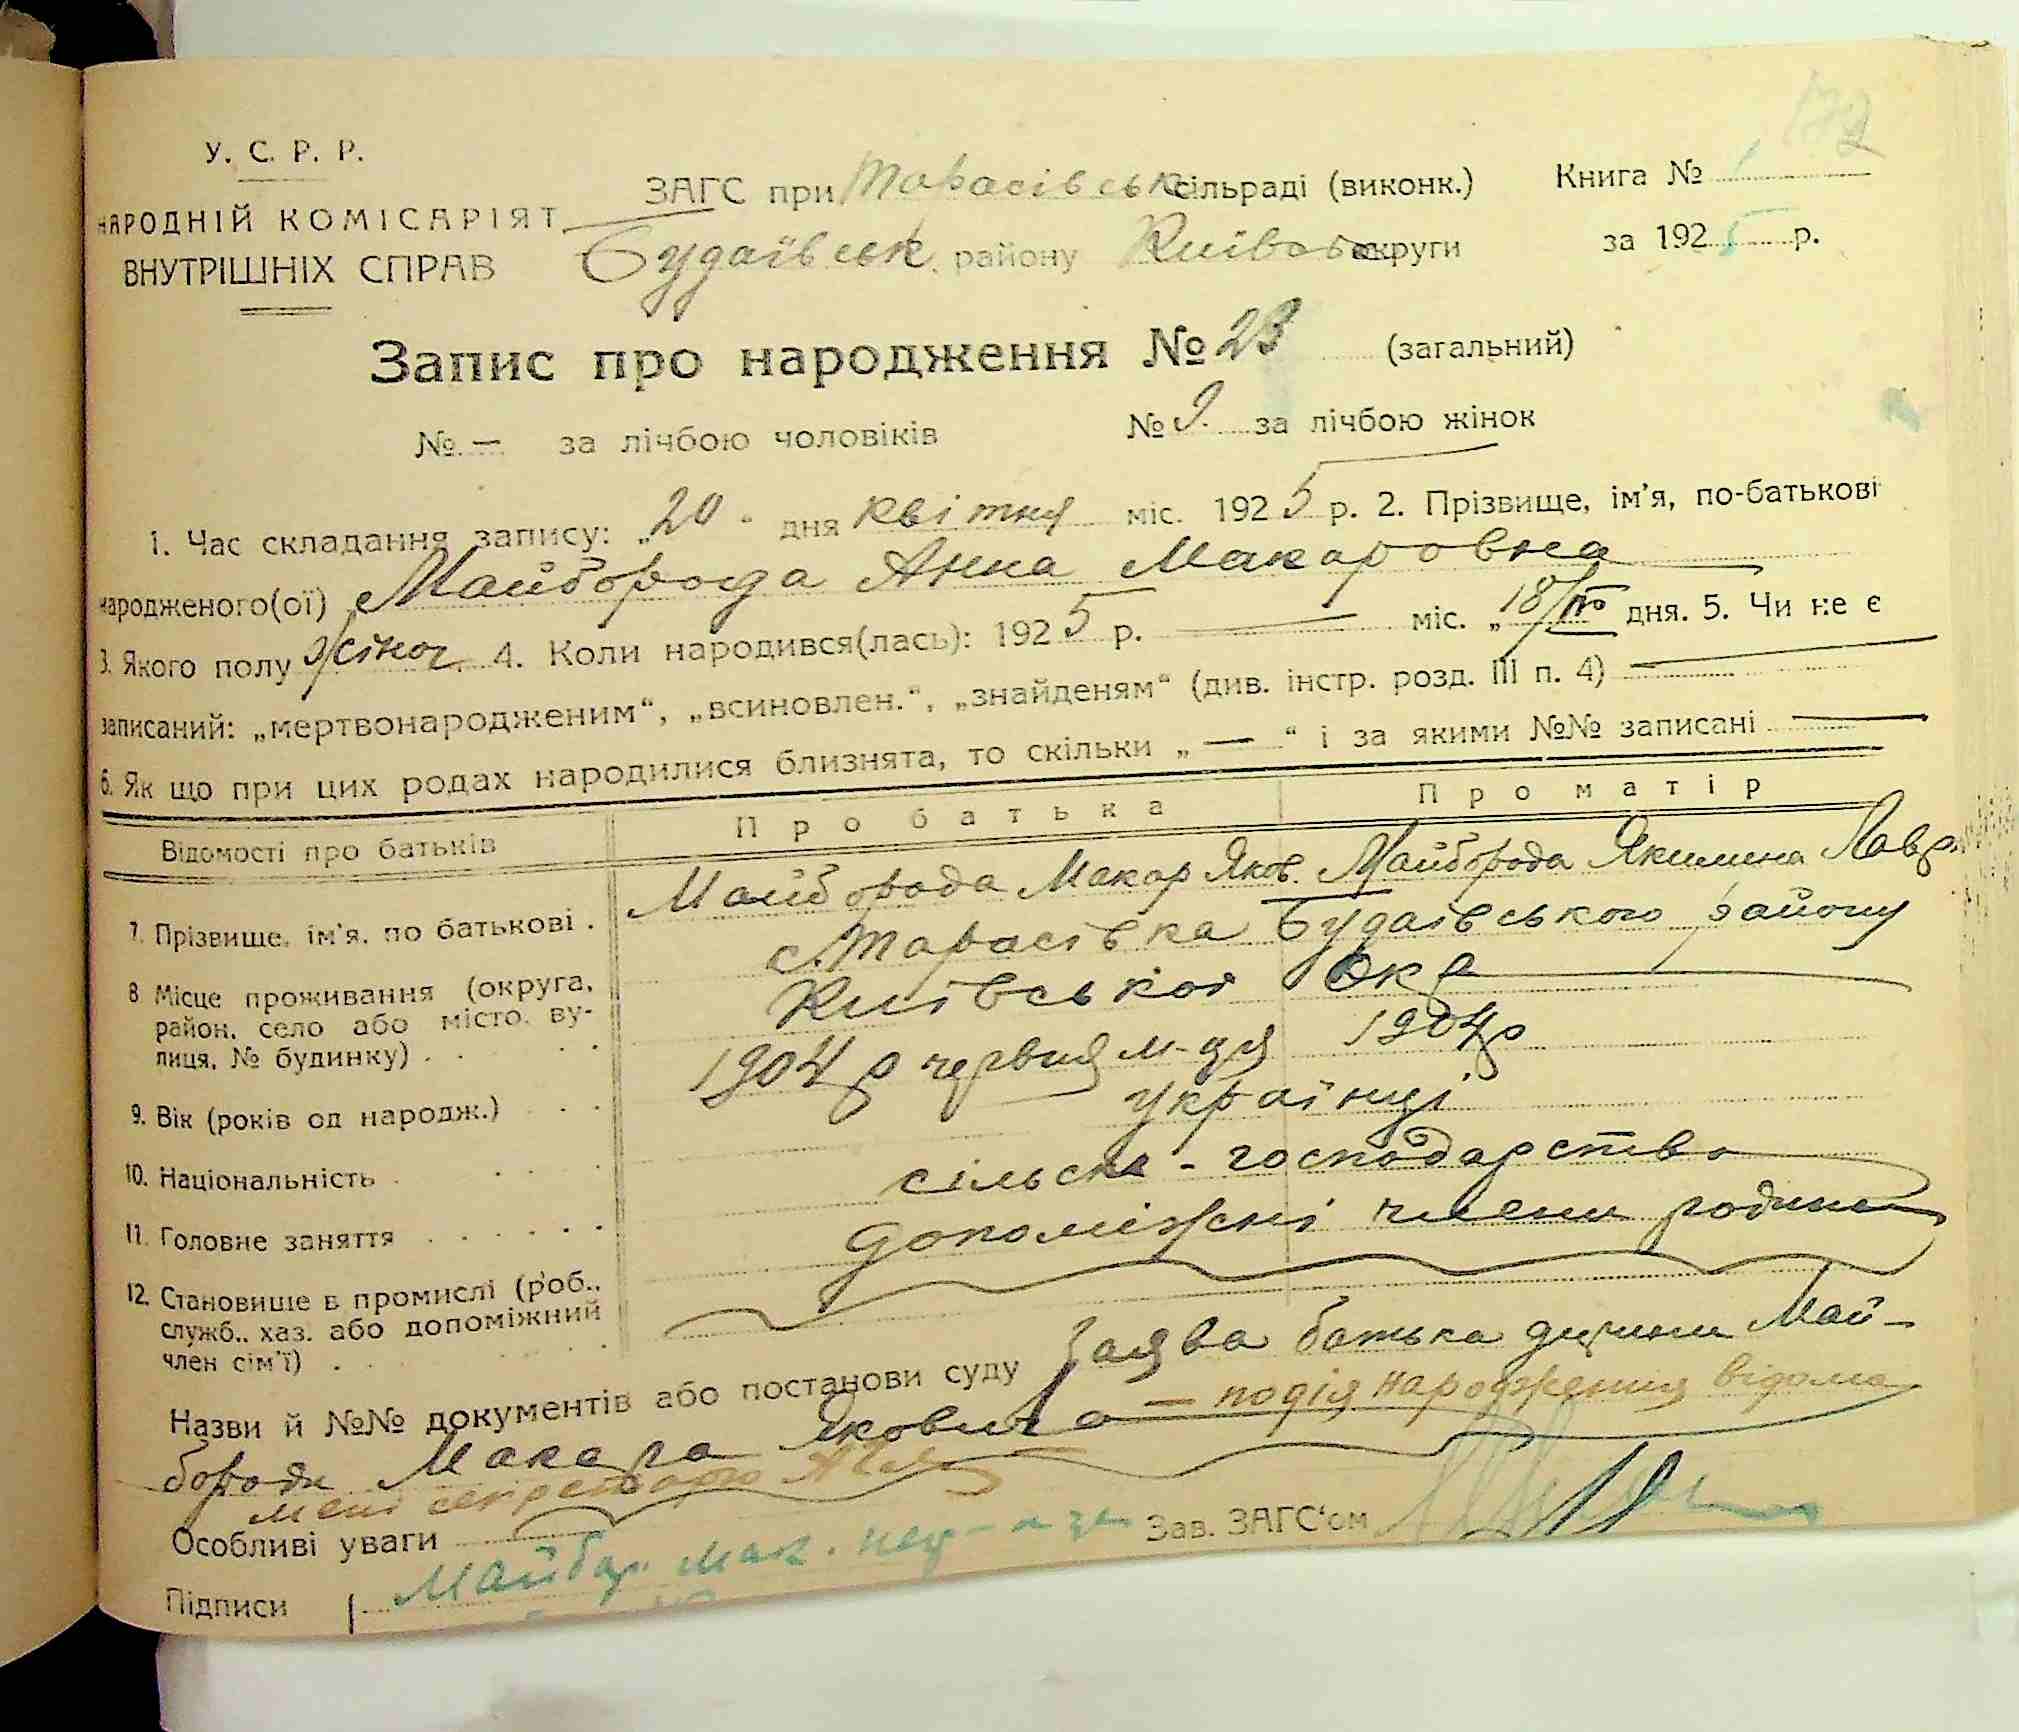 172
У. С. Р. Р.
НАРОДНІЙ КОМІСАРІЯТ
ВНУТРІШНІХ СПРАВ
ЗАГС при Тарасівськ сільраді (виконк.)
Будаївськ. району Київськ округи
Книга № 1
за 1925 р.
Запис про народження № 23 (загальний)
№ — за лічбою чоловіків № 9. за лічбою жінок
1. Час складання запису: „20" дня квітня міс. 1925 р. 2. Прізвище, ім'я, по-батькові
народженого(ої) Майборода Анна Макаровна
3. Якого полу жіноч. 4. Коли народився(лась): 1925 р. — міс. „18/IV го дня. 5. Чи не є
записаний: „мертвонародженим“, „всиновлен.“, „знайденям“ (див. інстр. розд. III п. 4) —
6. Як що при цих родах народилися близнята, то скільки „ — “ і за якими №№ записані —
Відомості про батьків Про батька Про матір
7. Прізвище, ім'я, по батькові . Майборода Макар Яков. Майборода Якилина Лавр.
8 Місце проживання (округа, район, село або місто, вулиця, № будинку) . с. Тарасівка Будаївського району
Київської Окр
9. Вік (років од народж.) 1904 р червня м-ця 1904 р
10. Національність . українці
11. Головне заняття сільськ-господарство
12. Становище в промислі (роб., служб., хаз. або допоміжний член сім'ї) . допоміжні члени родини
Назви й №№ документів або постанови суду Заява батька дитини Май-
бороди Макара Яковича — подія народження відома
мені секретарю
Особливі уваги
Зав. ЗАГС‘ом
Підписи Майбор. Мак.